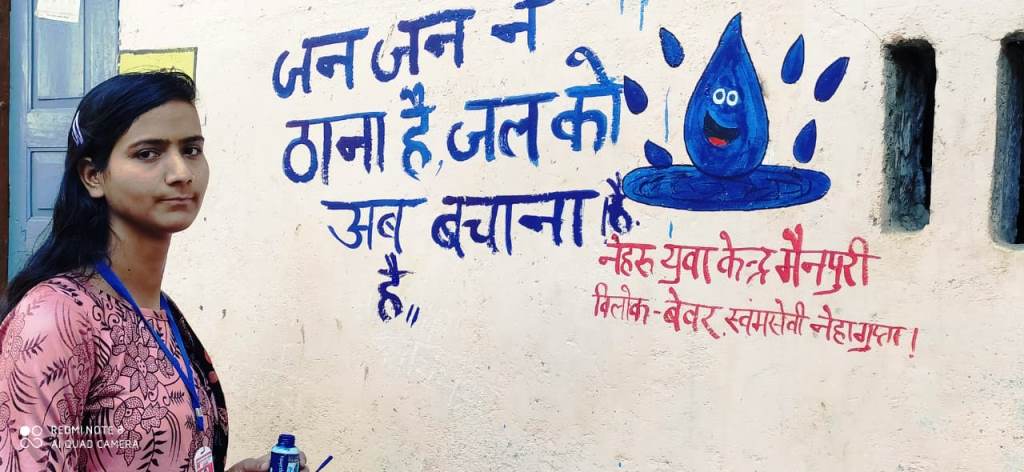 जन जन न
ठाना है, जल को
अब बचाना है।
है,,
नेहरू युवा केन्द्र मैनपुरी
विलोक - बेवर स्वंमसेवी नेहा गुप्ता!
REDMI NOTE 8
AI QUAD CAMERA